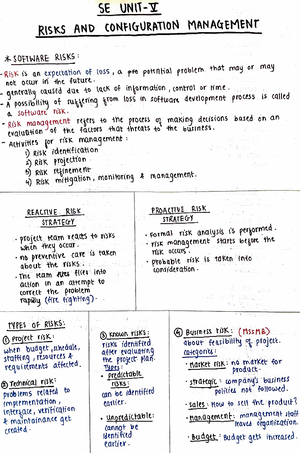 SE UNIT-V
RISKS AND CONFIGURATION MANAGEMENT
* SOFTWARE RISKS:
- Risk is an expectation of loss, a pre potential problem that may or may
not occur in the future.
- generally caused due to lack of information, control or time.
- A possibility of suffering from loss in software development process is called
a software risk.
- Risk management refers to the process of making decisions based on an
evaluation of the factors that threats to the business.
- Activities for risk management:
1) Risk identification
2) Risk projection
3) Risk refinement
4) Risk mitigation, monitoring & management.
REACTIVE RISK
STRATEGY
- project team reacts to risks
when they occur.
- no preventive care is taken
about the risks.
- The team flies into
action in an attempt to
correct the problem
rapidly (fire fighting).
PROACTIVE RISK
STRATEGY
- Formal risk analysis is performed.
- risk management starts before the
risk occurs.
- probable risk is taken into
consideration.
TYPES OF RISKS:
① Project risk:
when budget, schedule,
staffing, resources &
requirements affected.
② Technical risk:
problems related to
implementation,
interface, verification
& maintainance get
created.
③ Known risks:
risks identified
after evaluating
the project plan.
Types:
- predictable
risks:
can be identified
earlier.
- Unpredictable:
cannot be
identified
earlier.
④ Business risk: (MSSMB)
about feasibility of project.
categories:
- market risk: no market for
product.
- strategic: company's business
polities not followed.
- sales: How to sell the product?
- management: management staff
leaves organization.
- Budget: Budget gets increased.